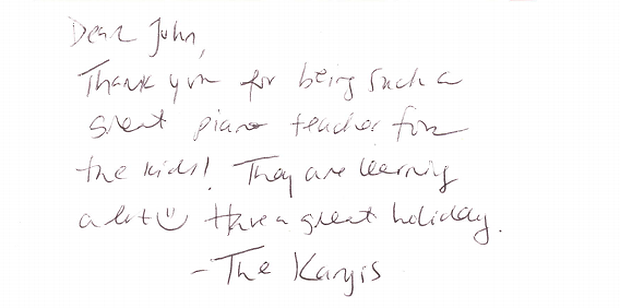 Dear John,
Thank you for being such a
great piano teacher for
the kids! They are learning
a lot☺ Have a great holiday.
- The